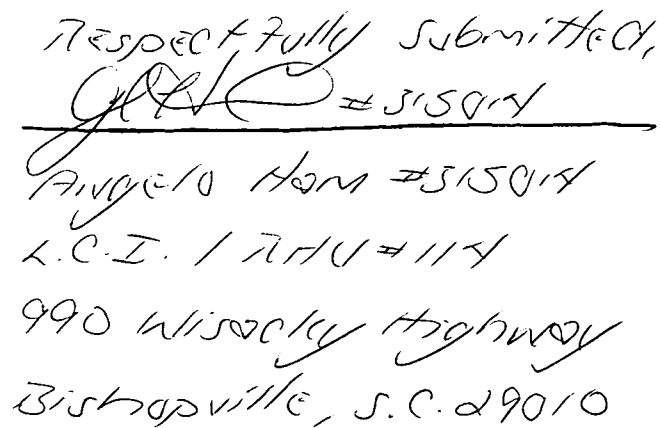 Respectfully submitted,
#315014
Angelo Ham #315014
L.C.I. / RHU #114
990 Wisacky Highway
Bishopville, S.C. 29010